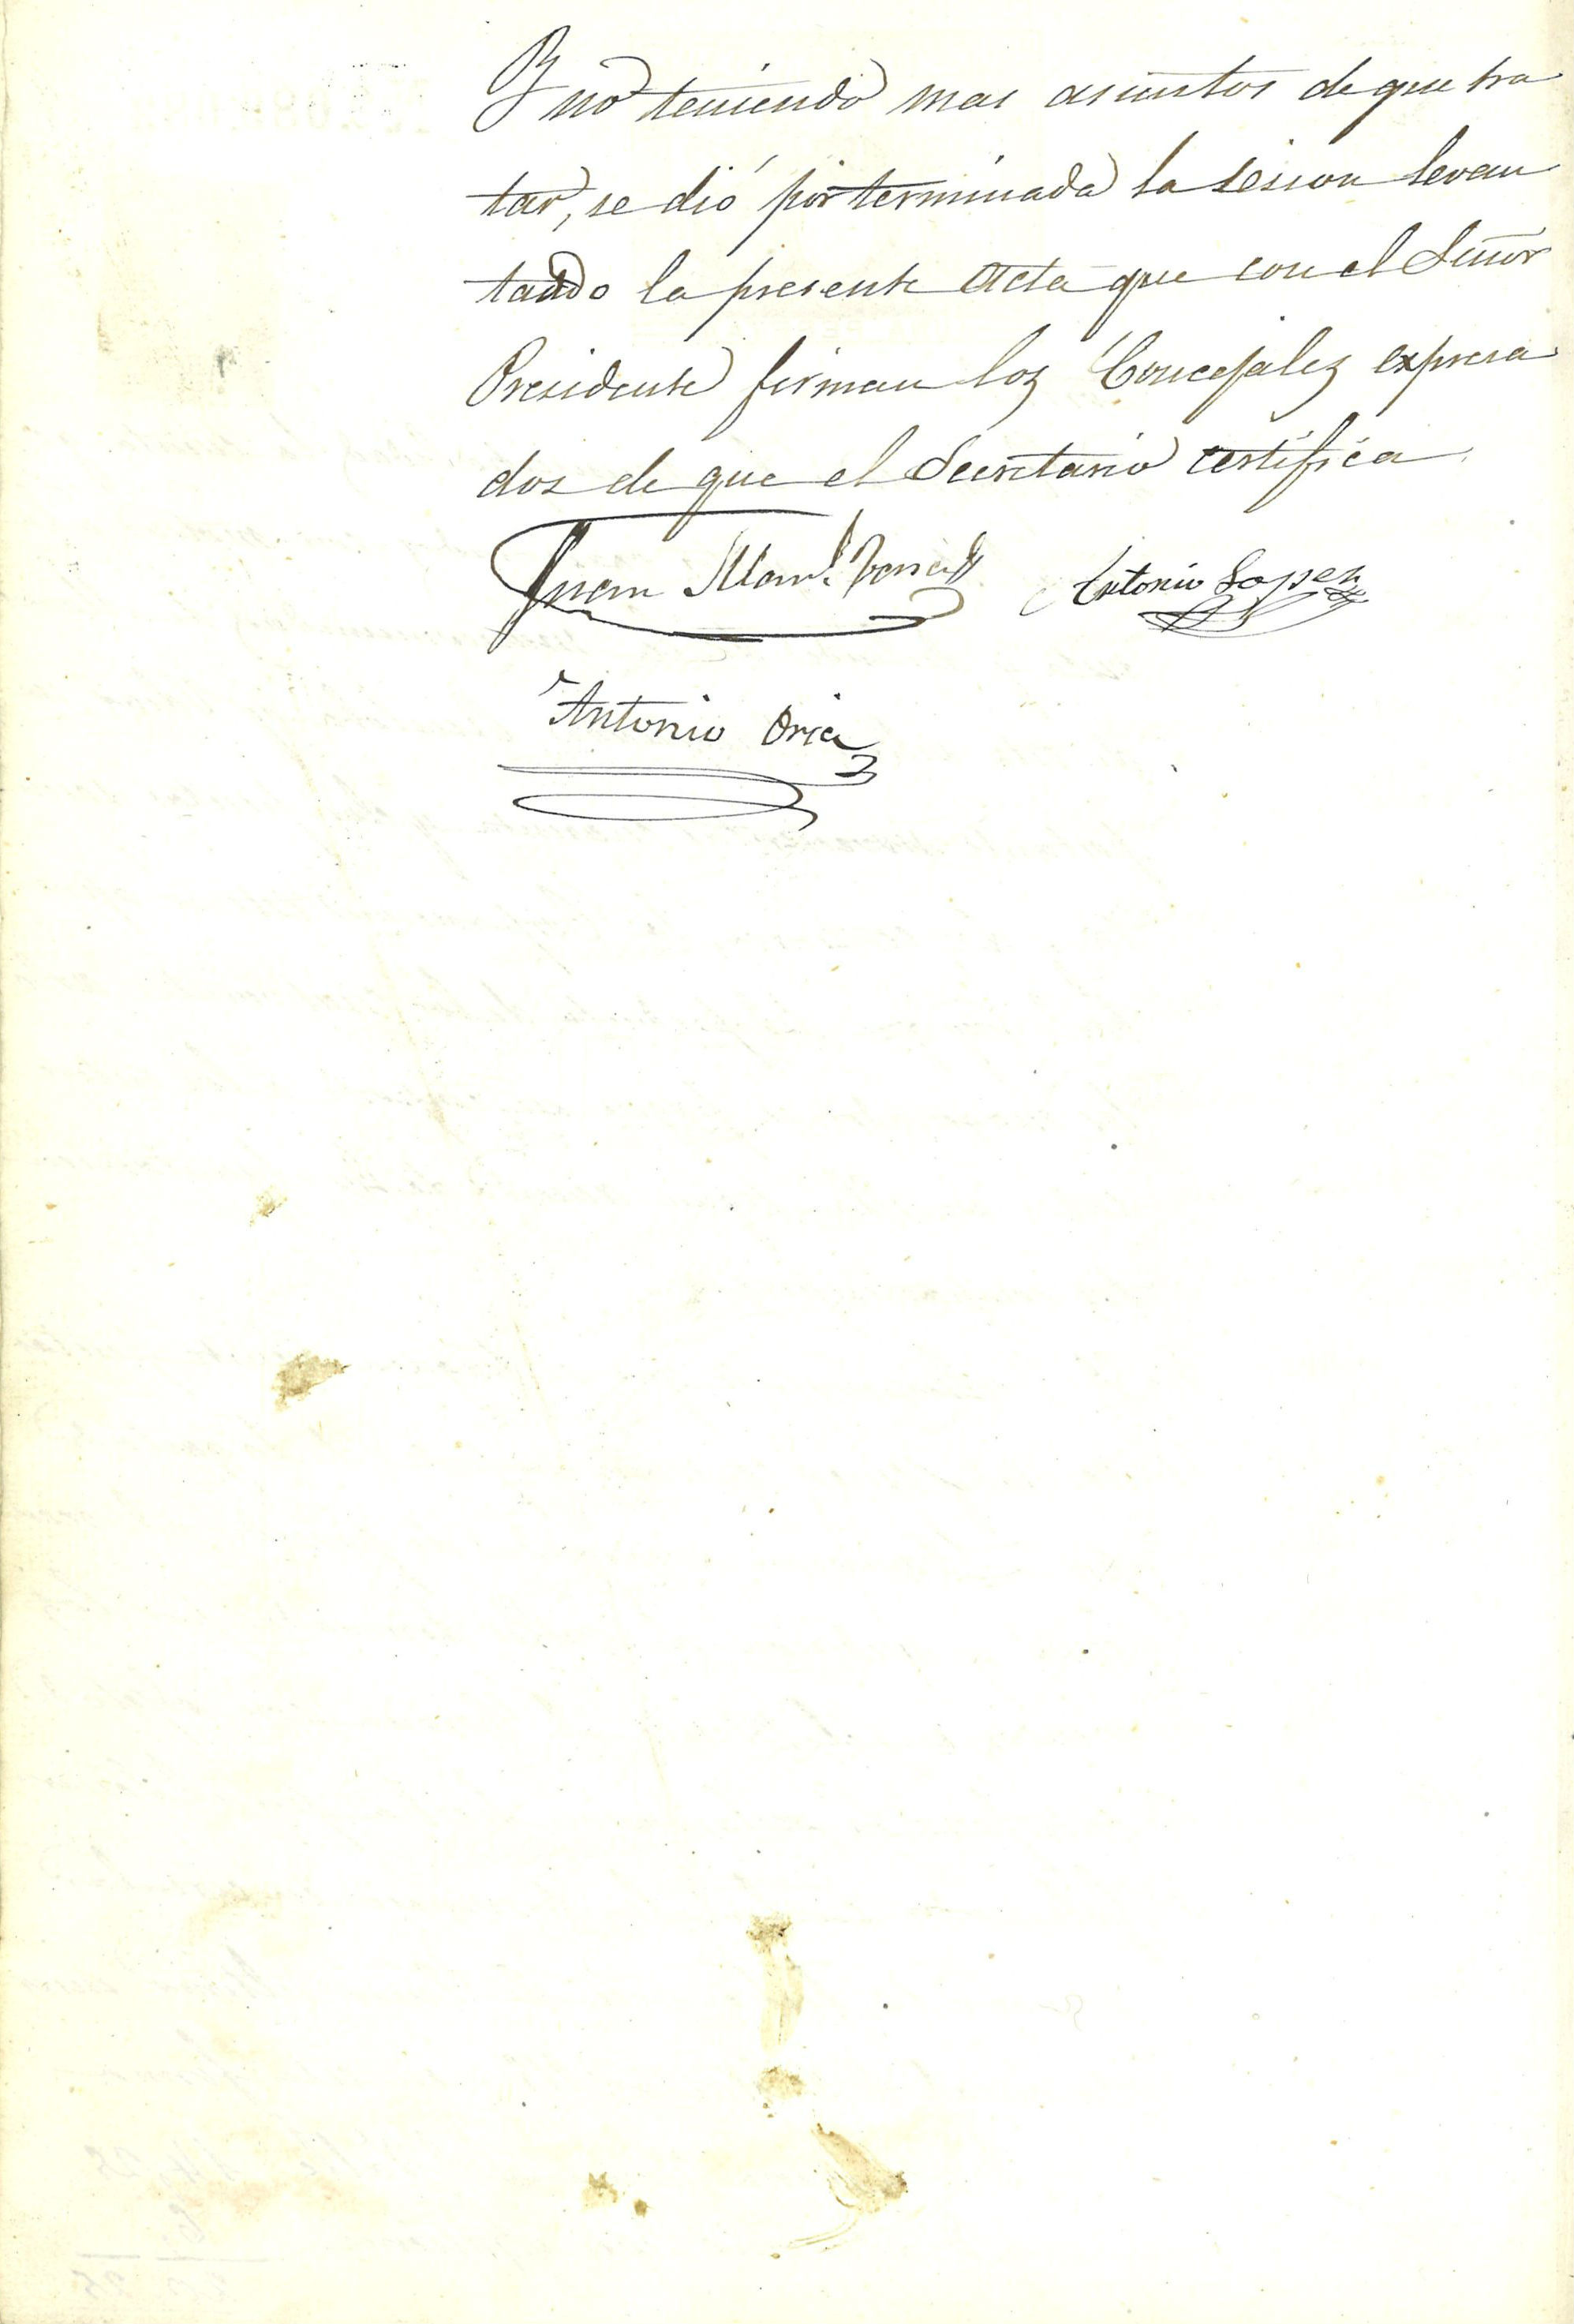 Y no teniendo mas asuntos de que tra
tar, se dió por terminada la sesion levan
tando la presente Acta que con el Señor
Presidente firman los Concejales expresa
dos de que el Secretario certifica.
Juan Man.l Antonio Lopez
Antonio Oria